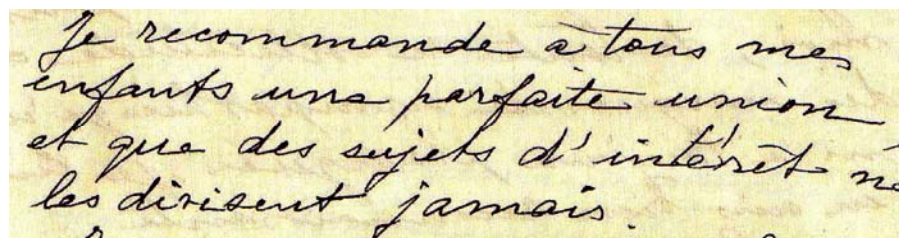 Je recommande à tous mes
enfants une parfaite union
et que des sujets d'intérêt ne
les divisent jamais.